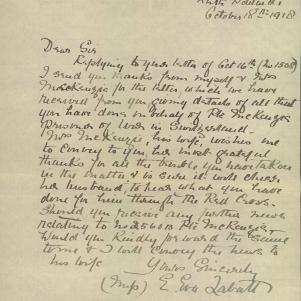 North Adelaide
October 18th 1918
Dear Sir
Replying to your letter of Oct 16th (No 1538)
I send you thanks from myself & Mrs
McKenzie for the letter, which we have
received from you giving details of all that
you have done on behalf of Pte McKenzie
Prisoner of War in Switzerland.
Mrs McKenzie, his wife, wishes me
to convey to you her most grateful
thanks for all the trouble you have taken
in the matter & is sure it will cheer
her husband, to hear what you have
done for him through the Red Cross.
Should you receive any further news
relating to Pte McKenzie
would you kindly forward the same
to me & I will convey the news to
his wife
Yours Sincerely
(Mrs) E. Eva